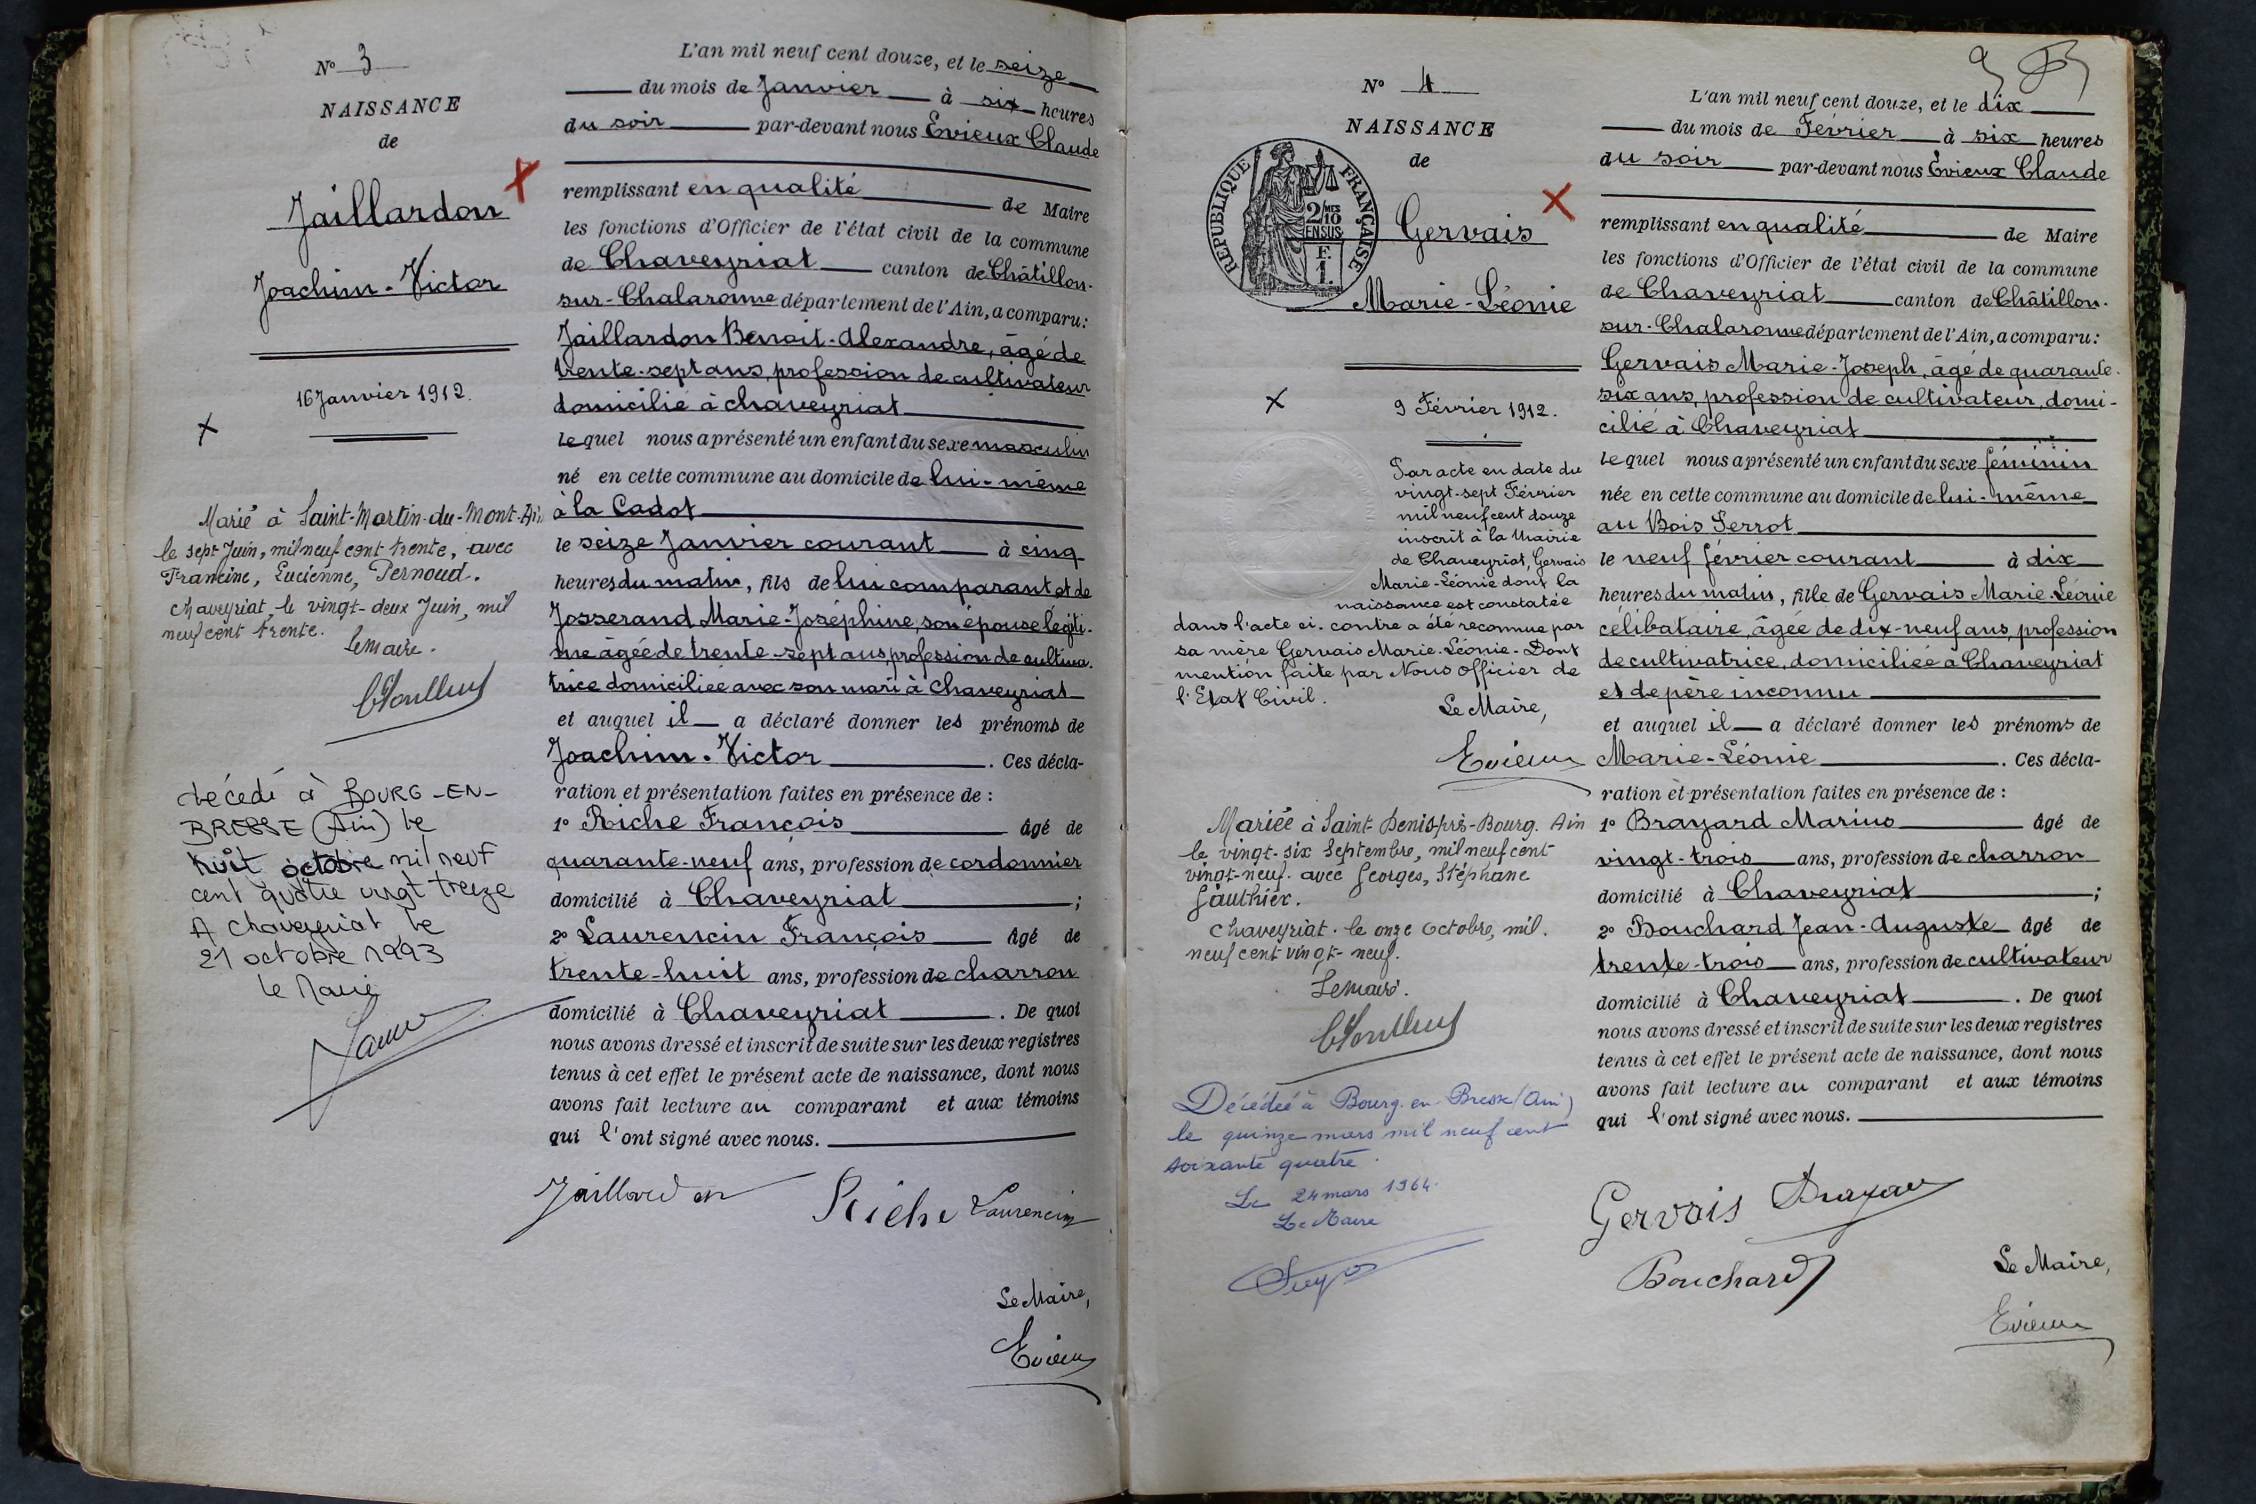 N° 3
NAISSANCE
de
Jaillardon
Joachim-Victor
16 Janvier 1912.
Marié à Saint-Martin-du-Mont-Ain
le sept Juin, mil neuf cent trente, avec
Francine, Lucienne, Pernoud.
Chaveyriat, le vingt-deux Juin, mil
neuf cent trente.
Le Maire.
décédé à BOURG-EN-
BRESSE (Ain) le
huit octobre mil neuf
cent quatre vingt treize
A Chaveyriat le
21 octobre 1993
Le Maire
L'an mil neuf cent douze, et le seize
du mois de Janvier à six heures
du soir par-devant nous Evieux Claude
remplissant en qualité de Maire
les fonctions d'Officier de l'état civil de la commune
de Chaveyriat canton de Châtillon-
sur-Chalaronne département de l'Ain, a comparu:
Jaillardon Benoit-Alexandre, âgé de
trente-sept ans, profession de cultivateur
domicilié à Chaveyriat
lequel nous a présenté un enfant du sexe masculin
né en cette commune au domicile de lui-même
à la Cadot
le seize Janvier courant à cinq
heures du matin, fils de lui comparant et de
Josserand Marie-Joséphine, son épouse légiti-
me âgée de trente-sept ans, profession de cultiva-
trice domiciliée avec son mari à Chaveyriat
et auquel il a déclaré donner les prénoms de
Joachim-Victor. Ces décla-
ration et présentation faites en présence de :
1° Riche François âgé de
quarante-neuf ans, profession de cordonnier
domicilié à Chaveyriat ;
2° Laurencin François âgé de
trente-huit ans, profession de charron
domicilié à Chaveyriat. De quoi
nous avons dressé et inscrit de suite sur les deux registres
tenus à cet effet le présent acte de naissance, dont nous
avons fait lecture au comparant et aux témoins
qui l'ont signé avec nous.
Jaillardon Riche Laurencin
Le Maire,
Evieux
N° 4
NAISSANCE
de
RÉPUBLIQUE FRANÇAISE
2/10 MES
EN SUS
F.
1.
Gervais
Marie-Léonie
9 Février 1912.
Par acte en date du
vingt-sept Février
mil neuf cent douze
inscrit à la Mairie
de Chaveyriat, Gervais
Marie-Léonie dont la
naissance est constatée
dans l'acte ci-contre a été reconnue par
sa mère Gervais Marie-Léonie-Dont
mention faite par Nous Officier de
l'Etat Civil.
Le Maire,
Evieux
Mariée à Saint-Denis-près-Bourg. Ain
le vingt-six Septembre, mil neuf cent-
vingt-neuf. avec Georges, Stéphane
Gauthier.
Chaveyriat. le onze Octobre, mil.
neuf cent vingt-neuf.
Le Maire.
Décédée à Bourg-en-Bresse (Ain)
le quinze mars mil neuf cent
soixante quatre.
Le 24 mars 1964.
Le Maire
L'an mil neuf cent douze, et le dix
du mois de Février à six heures
du soir par-devant nous Evieux Claude
remplissant en qualité de Maire
les fonctions d'Officier de l'état civil de la commune
de Chaveyriat canton de Châtillon-
sur-Chalaronne département de l'Ain, a comparu:
Gervais Marie-Joseph, âgé de quarante-
six ans, profession de cultivateur, domi-
cilié à Chaveyriat
lequel nous a présenté un enfant du sexe féminin
née en cette commune au domicile de lui-même
au Bois Perrot
le neuf février courant à dix
heures du matin, fille de Gervais Marie-Léonie
célibataire, âgée de dix-neuf ans, profession
de cultivatrice, domiciliée à Chaveyriat
et de père inconnu
et auquel il a déclaré donner les prénoms de
Marie-Léonie. Ces décla-
ration et présentation faites en présence de :
1° Brayard Marius âgé de
vingt-trois ans, profession de charron
domicilié à Chaveyriat ;
2° Bouchard Jean-Auguste âgé de
trente-trois ans, profession de cultivateur
domicilié à Chaveyriat. De quoi
nous avons dressé et inscrit de suite sur les deux registres
tenus à cet effet le présent acte de naissance, dont nous
avons fait lecture au comparant et aux témoins
qui l'ont signé avec nous.
Gervais
Bouchard
Le Maire,
Evieux